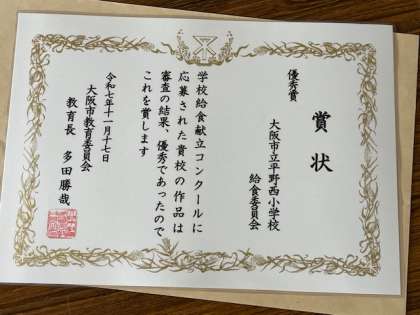 賞状
優秀賞
大阪市立平野西小学校
給食委員会
学校給食献立コンクールに
応募された貴校の作品は
審査の結果、優秀であったので
これを賞します
令和七年十一月十七日
大阪市教育委員会
教育長 多田勝哉